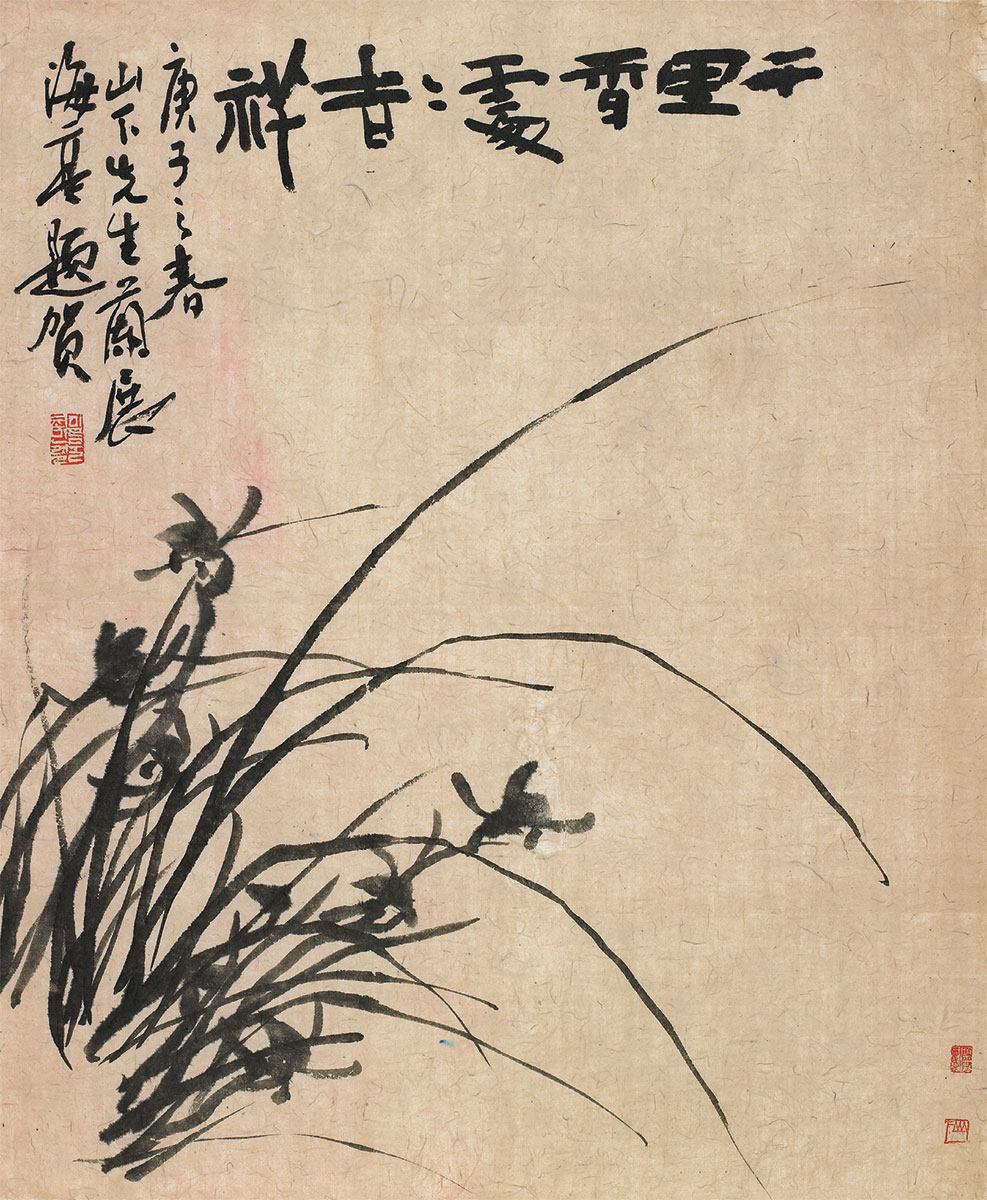 千里香處〻吉祥
庚子之春
山下先生蘭展
題賀